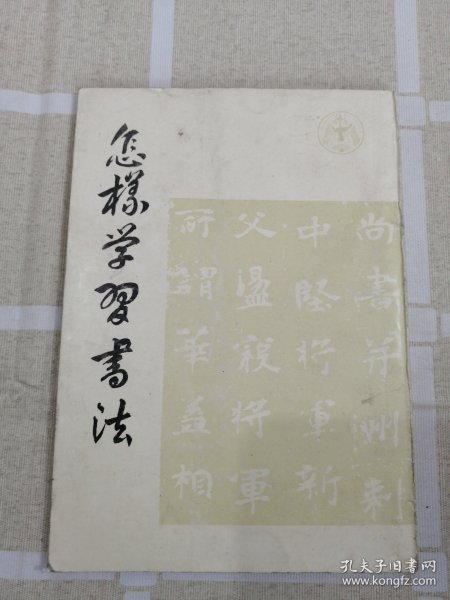 怎樣学習書法
尚書并洲刺
中堅将軍新
父温寝将軍
所謂華蓋相
孔夫子旧书网
www.kongfz.com